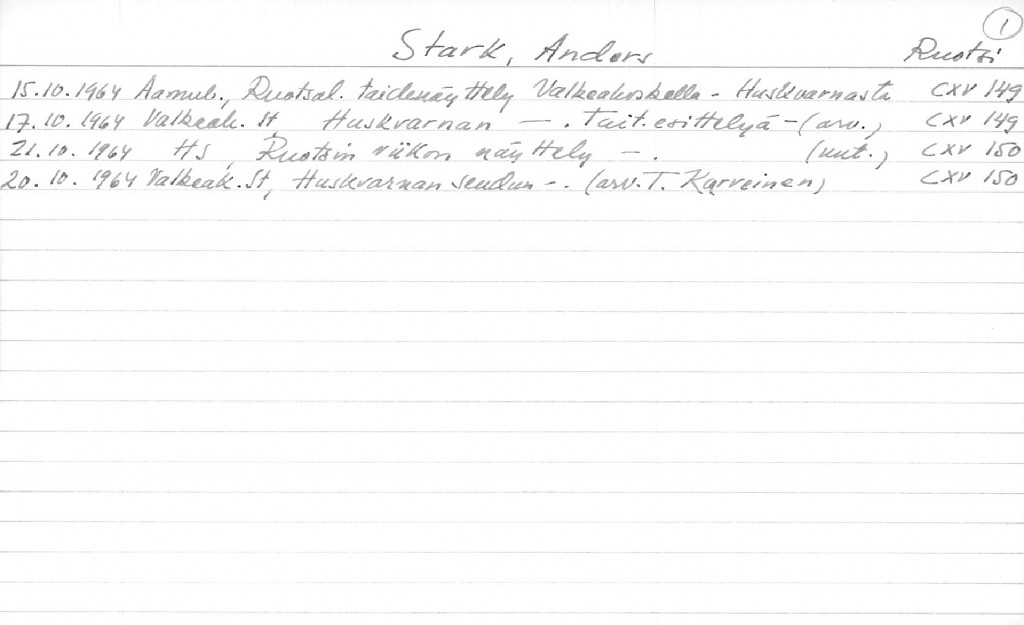 1
Stark, Anders Ruotsi
15.10.1964 Aamul., Ruotsal. taidenäyttely Valkeakoskella - Huskvarnasta CXV 149
17.10.1964 Valkeak. St, Huskvarnan — . Tait. esittelyä - (arv.) CXV 149
21.10.1964 HS, Ruotsin viikon näyttely — . (uut.) CXV 150
20.10.1964 Valkeak. St, Huskvarnan seudun - . (arv. T. Karveinen) CXV 150